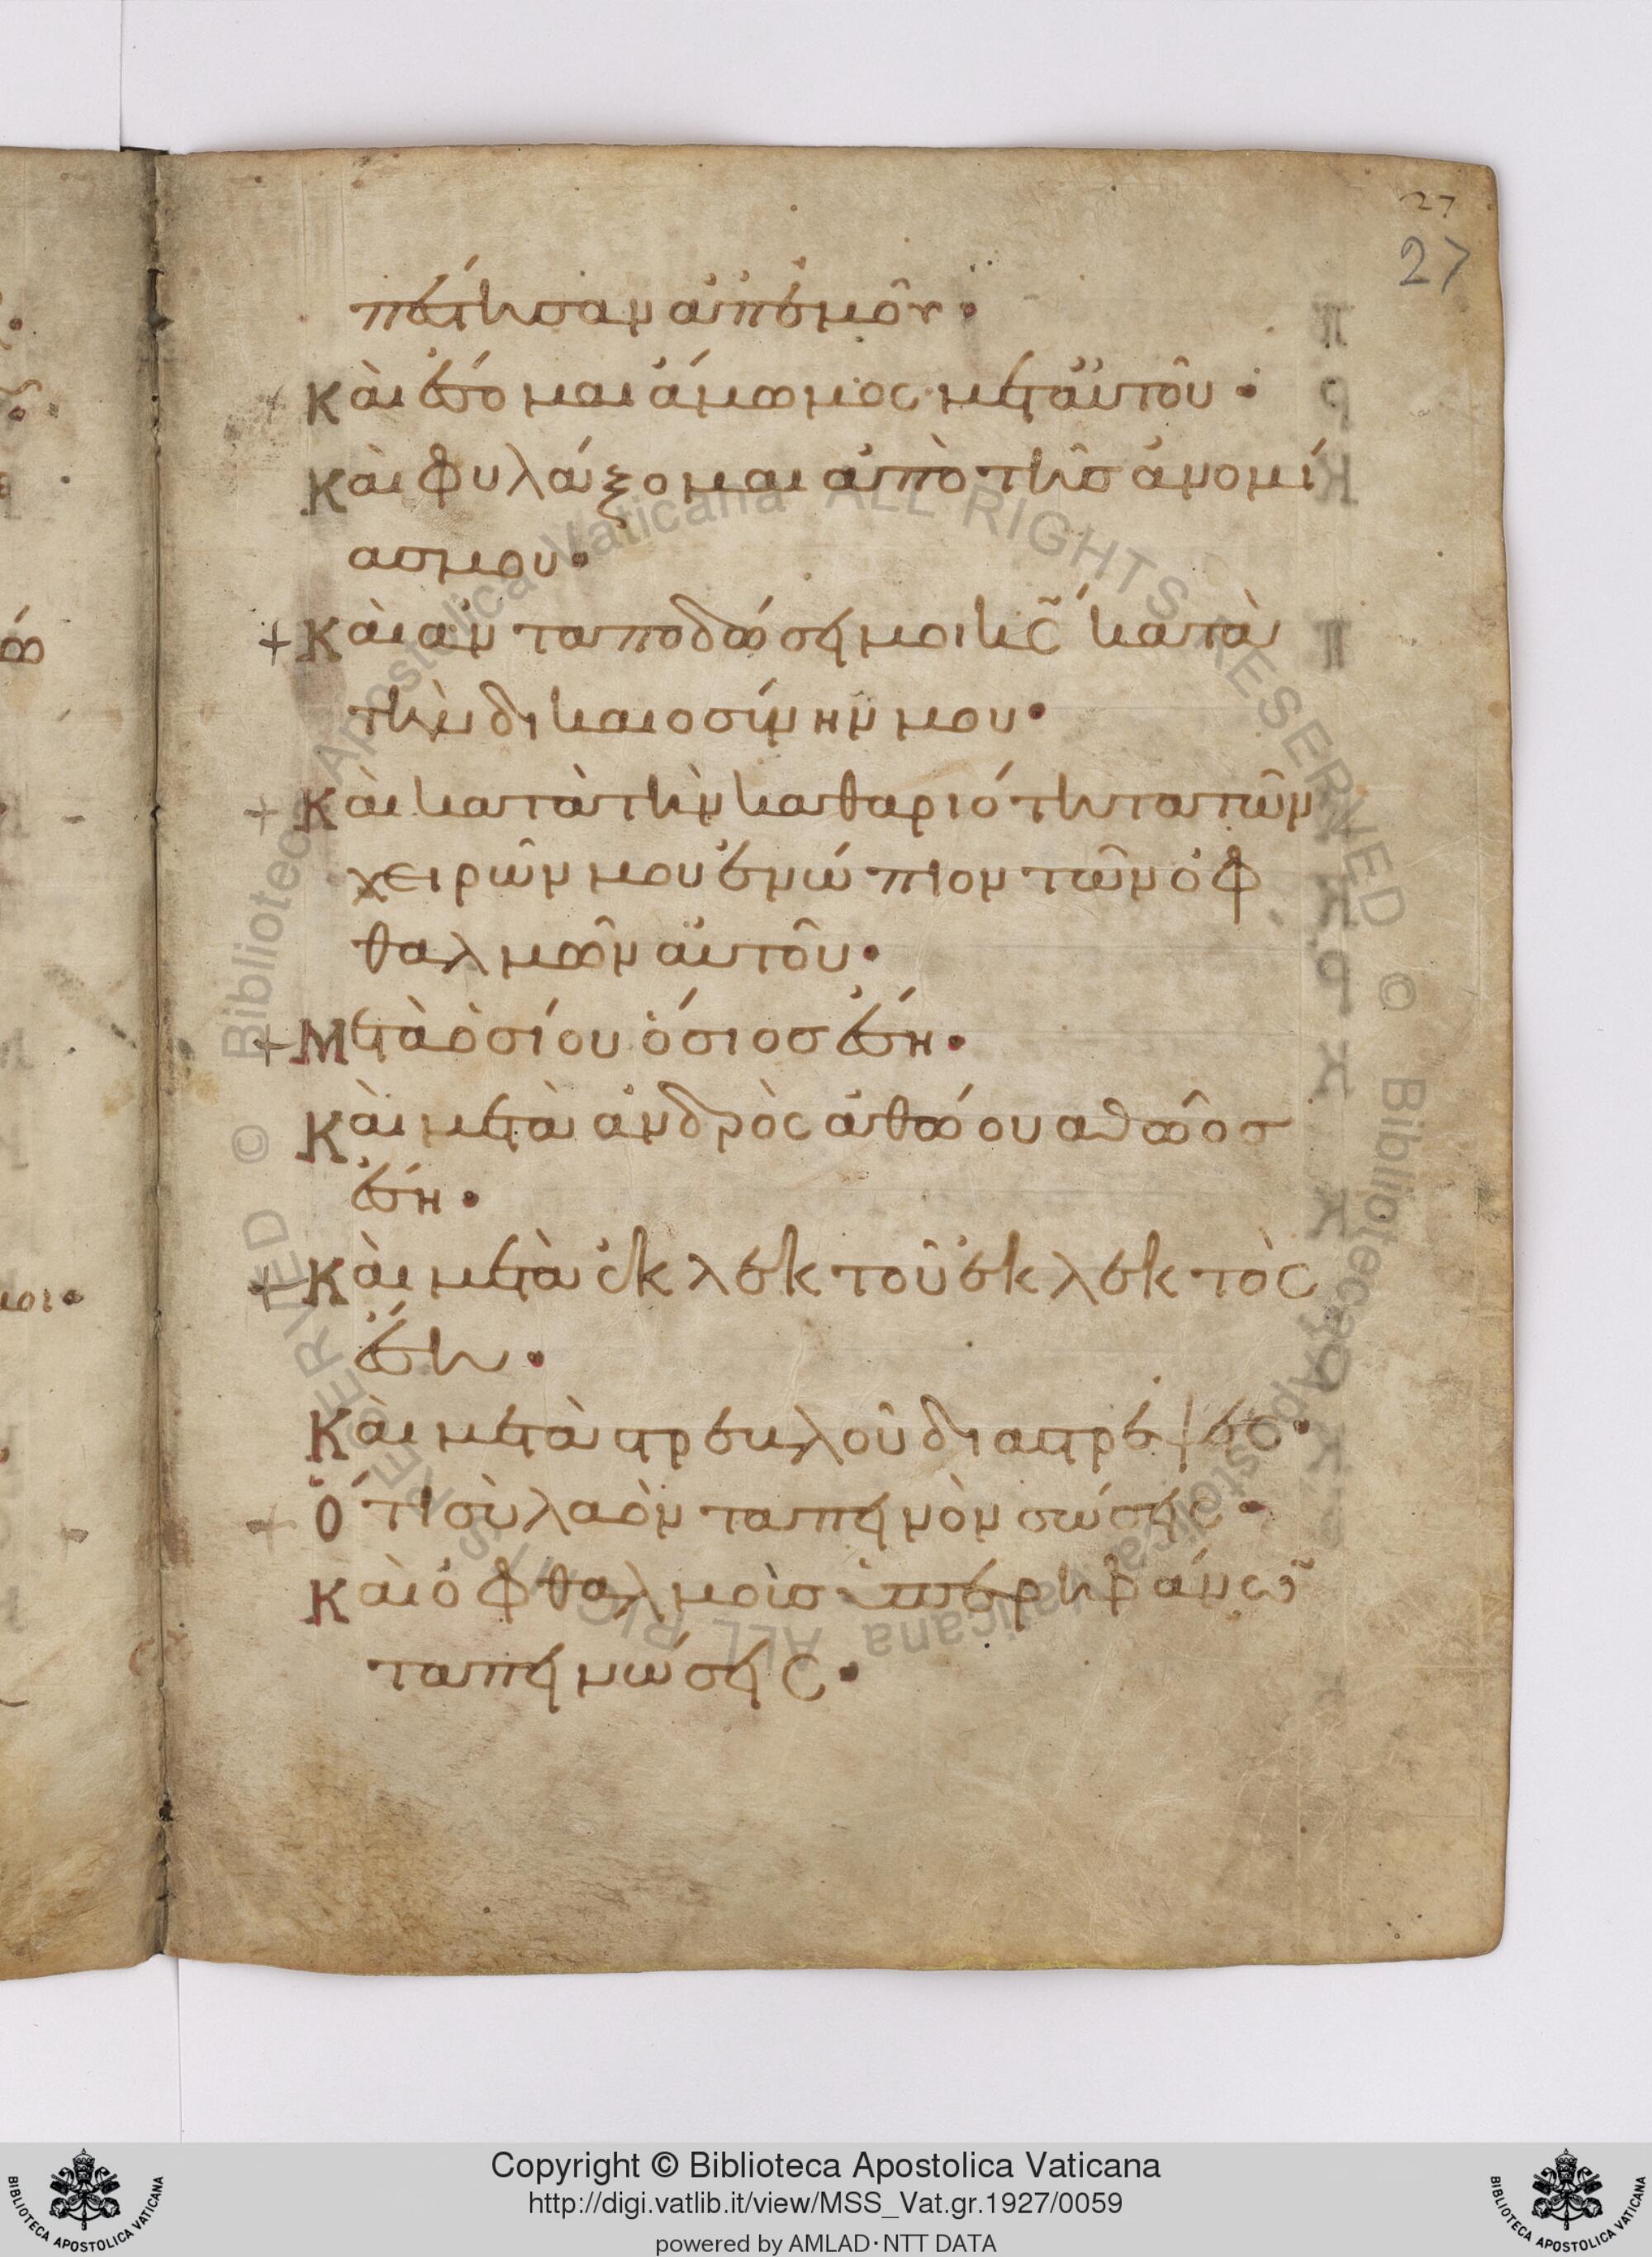 27
27
πέστησαν ἀπ' ἐμοῦ·
Καὶ ἔσομαι ἄμωμος μετ' αὐτοῦ·
Καὶ φυλάξομαι ἀπὸ τῆς ἀνομί
ας μου·
+ Καὶ ἀνταποδώσει μοι κ̅ς̅ κατὰ
τὴν δικαιοσύνην μου·
+ Καὶ κατὰ τὴν καθαριότητα τῶν
χειρῶν μου ἐνώπιον τῶν ὀφ
θαλμῶν αὐτοῦ·
+ Μετὰ ὁσίου ὅσιος ἔση·
Καὶ μετὰ ἀνδρὸς ἀθώου αθῶος
ἔση·
+ Καὶ μετὰ ἐκλεκτοῦ ἐκλεκτὸς
ἔση·
Καὶ μετὰ στρεβλοῦ διαστρέψεις·
+ Ὅτι σὺ λαὸν ταπεινὸν σώσεις·
Καὶ ὀφθαλμοὺς ὑπερηφάνων
ταπεινώσεις·
Copyright © Biblioteca Apostolica Vaticana
http://digi.vatlib.it/view/MSS_Vat.gr.1927/0059
powered by AMLAD·NTT DATA
BIBLIOTECA APOSTOLICA VATICANA
BIBLIOTECA APOSTOLICA VATICANA